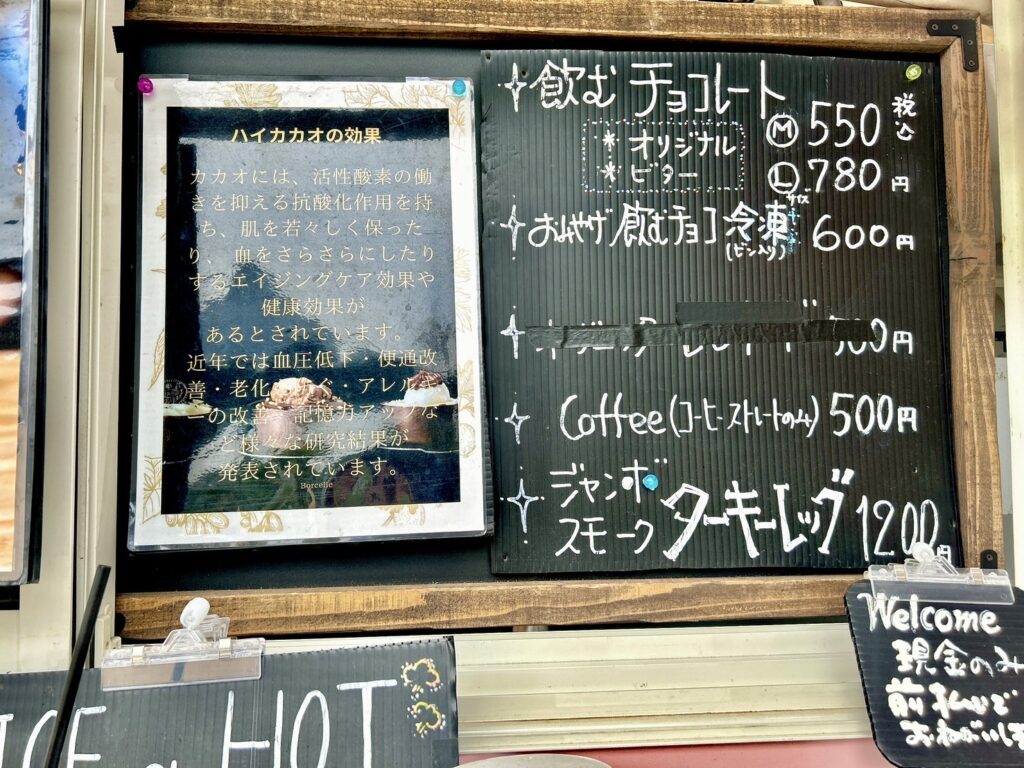 ハイカカオの効果
カカオには、活性酸素の働
きを抑える抗酸化作用を持
ち、肌を若々しく保った
り、血をさらさらにしたり
するエイジングケア効果や
健康効果が
あるとされています。
近年では血圧低下・便通改
善・老化を防ぐ・アレルギ
ーの改善・記憶力アップな
ど様々な研究結果が
発表されています。
Borcelle
飲む チョコレート
税込
* オリジナル Ⓜ 550
* ビター Ⓛサイズ 780円
おみやげ 飲むチョコ 冷凍 600円
(ビン入り)
円
Coffee (コーヒーストレートのみ) 500円
ジャンボ
スモーク ターキーレッグ 1200円
ICE or HOT
Welcome
現金のみ
前払いで
おねがいしま